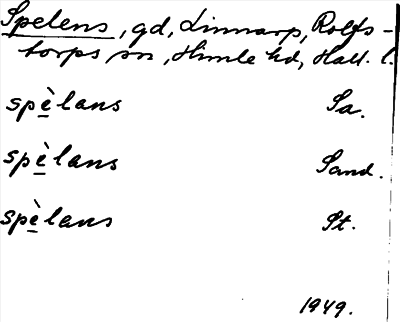 Spelens, gd, Linnarp, Rolfs-
torps sn, Himle hd, Hall. l.
spè̱lans Sa.
spè̱lans Sand.
spè̱lans St.
1949.